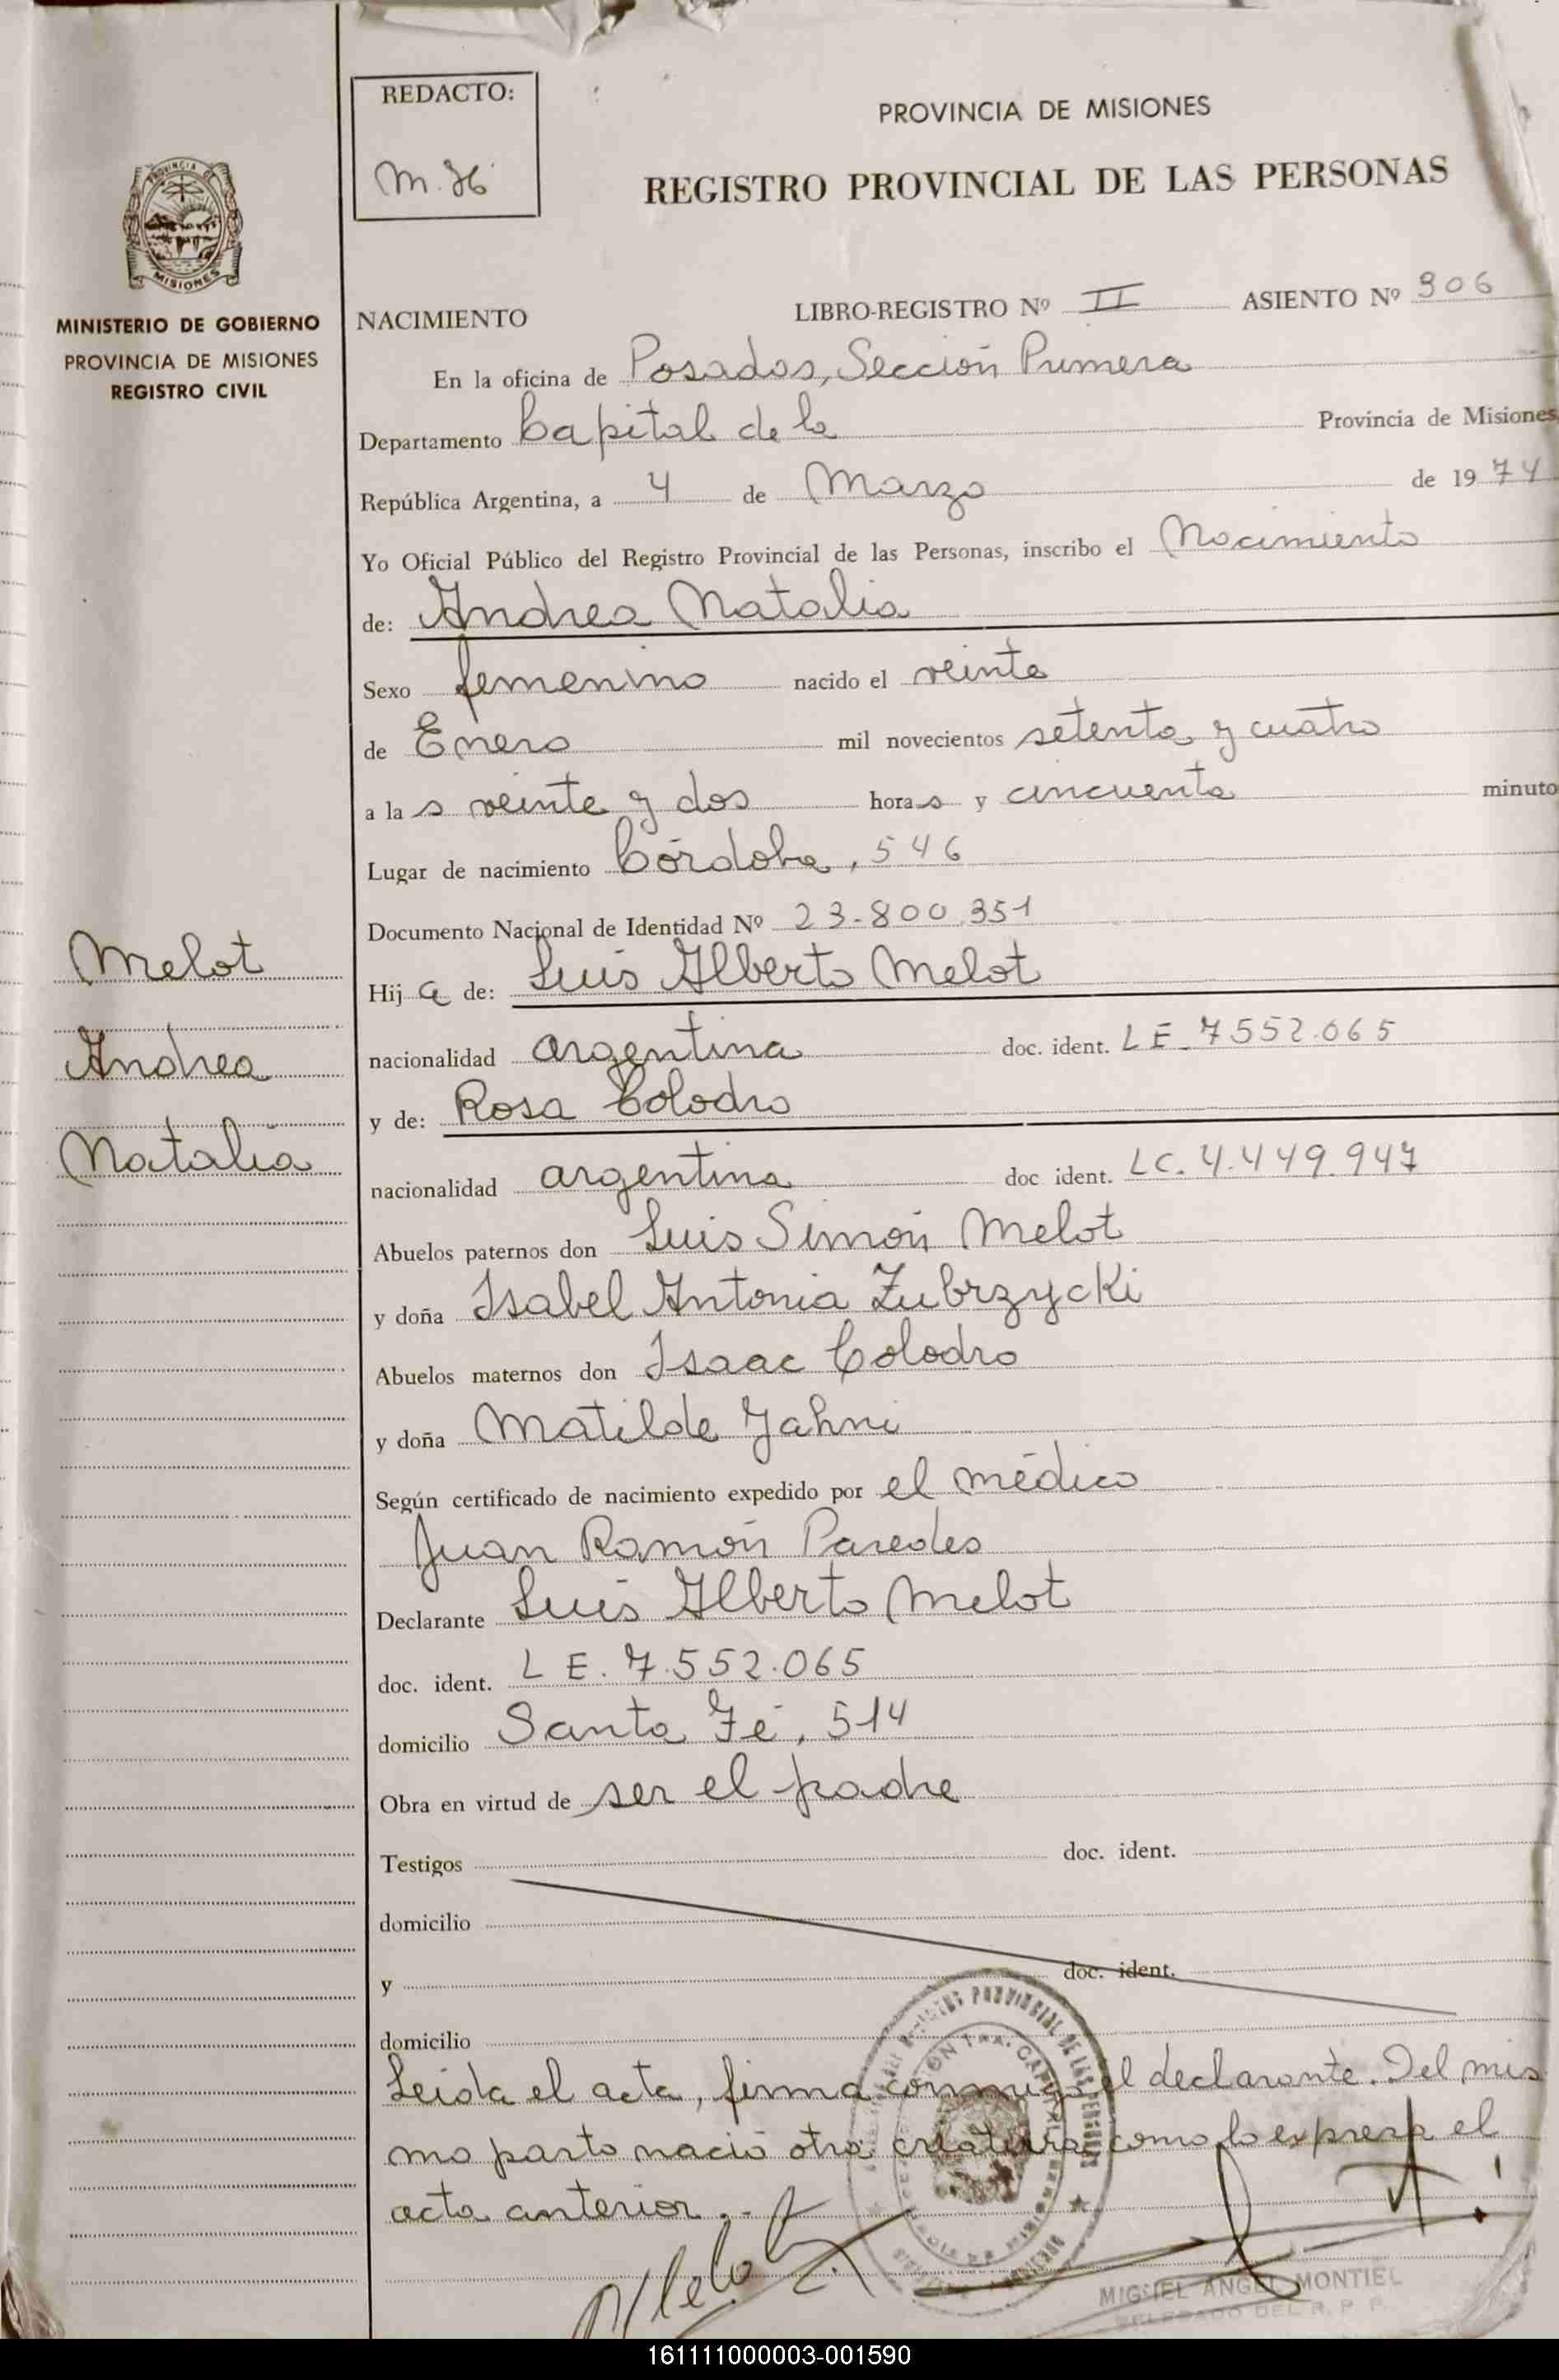 REDACTO:
PROVINCIA DE MISIONES
REGISTRO PROVINCIAL DE LAS PERSONAS
PROVINCIA DE
MISIONES
MINISTERIO DE GOBIERNO
PROVINCIA DE MISIONES
REGISTRO CIVIL
NACIMIENTO LIBRO-REGISTRO Nº II ASIENTO Nº 306
En la oficina de Posadas, Sección Primera
Departamento Capital de la Provincia de Misiones
República Argentina, a 4 de Marzo de 1974
Yo Oficial Público del Registro Provincial de las Personas, inscribo el Nacimiento
de: Andrea Natalia
Sexo femenino nacido el veinte
de Enero mil novecientos setenta y cuatro
a las veinte y dos horas y cincuenta minuto
Lugar de nacimiento Córdoba, 546
Documento Nacional de Identidad Nº 23.800.351
Melot
Hija de: Luis Alberto Melot
Andrea
nacionalidad argentina doc. ident. LE. 7552.065
y de: Rosa Colodro
Natalia
nacionalidad argentina doc ident. LC. 4.449.947
Abuelos paternos don Luis Simón Melot
y doña Isabel Antonia Zubrzycki
Abuelos maternos don Isaac Colodro
y doña Matilde Jahni
Según certificado de nacimiento expedido por el médico
Juan Ramón Paredes
Declarante Luis Alberto Melot
doc. ident. LE. 7.552.065
domicilio Santa Fé, 514
Obra en virtud de ser el padre
Testigos doc. ident.
domicilio
y doc. ident.
domicilio
Leida el acta, firma conmigo el declarante. Del mis
mo parto nació otra criatura como lo expresa el
acta anterior.-
Melot
MIGUEL ANGEL MONTIEL
DELEGADO DEL R. P. P.
161111000003-001590